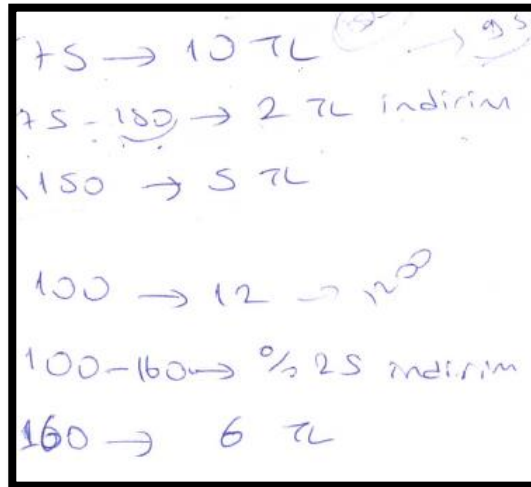 75 → 10 TL → 95
75 - 150 → 2 TL indirim
150 → 5 TL
100 → 12 → 1200
100-160 → %25 indirim
160 → 6 TL